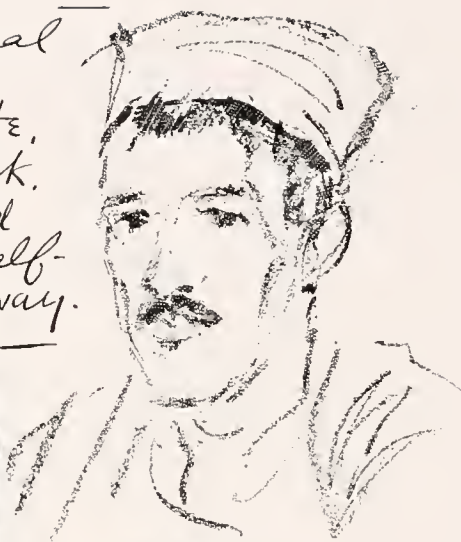 al
te,
k.
d
elf-
way.